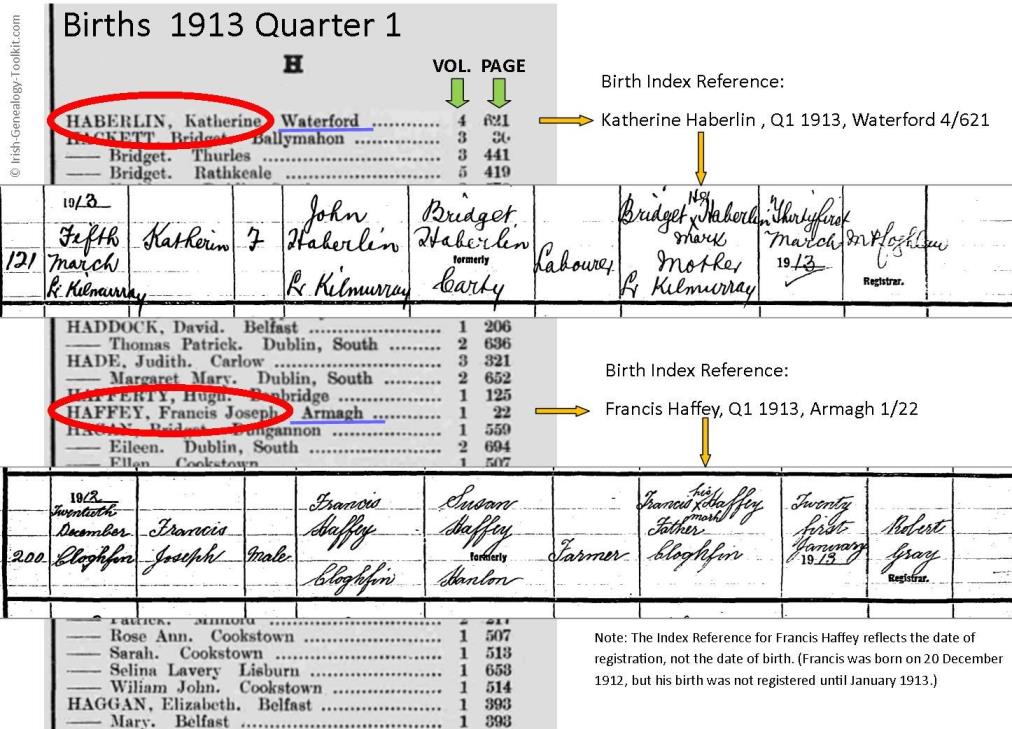 © Irish-Genealogy-Toolkit.com
Births 1913 Quarter 1
H
VOL. PAGE
HABERLIN, Katherine Waterford ............ 4 621
HACKETT, Bridget. Ballymahon ............ 3
—— Bridget. Thurles ............ 3 441
—— Bridget. Rathkeale ............ 5 419
Birth Index Reference:
Katherine Haberlin , Q1 1913, Waterford 4/621
121
1913
Fifth
March
Lr Kilmurray
Katherin
F
John
Haberlin
Lr Kilmurray
Bridget
Haberlin
formerly
Carty
Labourer
Bridget Her Haberlin
x
Mark
Mother
Lr Kilmurray
Thirtyfirst
March
1913
Registrar.
HADDOCK, David. Belfast ............ 1 206
—— Thomas Patrick. Dublin, South ......... 2 636
HADE, Judith. Carlow ............ 3 321
—— Margaret Mary. Dublin, South ......... 2 652
HAFFERTY, Hugh. Banbridge ............ 1 125
HAFFEY, Francis Joseph. Armagh ............ 1 22
HAGAN, Bridget. Dungannon ............ 1 559
—— Eileen. Dublin, South ............ 2 694
—— Ellen. Cookstown ............ 1 507
Birth Index Reference:
Francis Haffey, Q1 1913, Armagh 1/22
200
1912
Twentieth
December
Cloghfin
Francis
Joseph
Male
Francis
Haffey
Cloghfin
Susan
Haffey
formerly
Hanlon
Farmer
Francis his Haffey
x
mark
Father
Cloghfin
Twenty
first
January
1913
Robert
Gray
Registrar.
—— Patrick. Milford ............ 2 217
—— Rose Ann. Cookstown ............ 1 507
—— Sarah. Cookstown ............ 1 513
—— Selina Lavery Lisburn ............ 1 653
—— Wiliam John. Cookstown ............ 1 514
HAGGAN, Elizabeth. Belfast ............ 1 393
—— Mary. Belfast ............ 1 393
Note: The Index Reference for Francis Haffey reflects the date of
registration, not the date of birth. (Francis was born on 20 December
1912, but his birth was not registered until January 1913.)